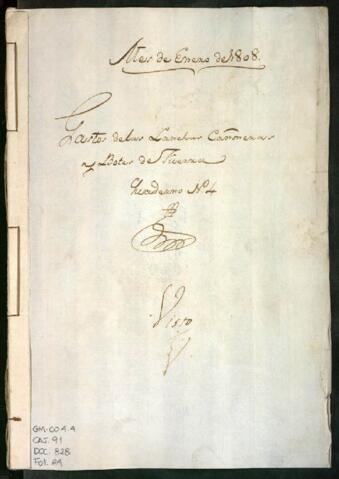 Mes de Enero de 1808.
Gastos de las Lanchas Cañoneras
y Botes de Fuerza
Quaderno N.º 4
Visto
GM-CO 4.4
CAJ. 91
DOC. 828
Fol. 24